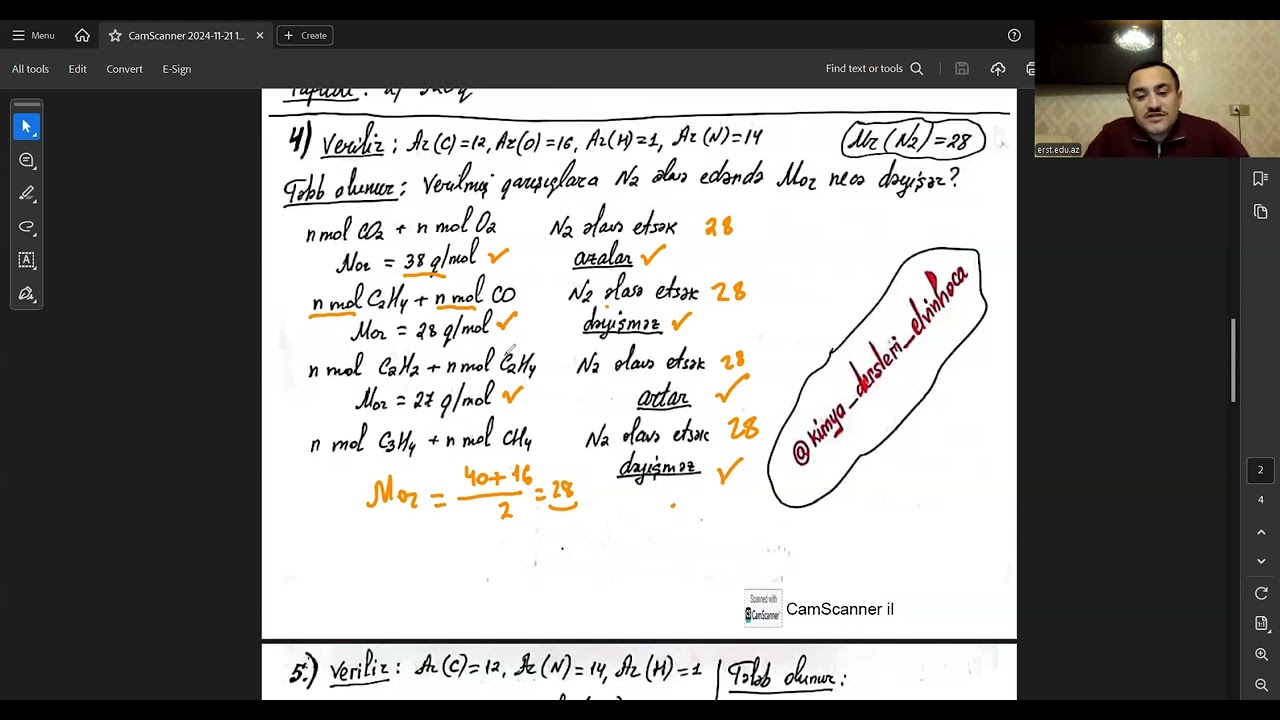 Menu
CamScanner 2024-11-21 1...
Create
All tools
Edit
Convert
E-Sign
Find text or tools
erst.edu.az
4) Verilir: Ar(C)=12, Ar(O)=16, Ar(H)=1, Ar(N)=14
Mr(N2)=28
Tələb olunur: Verilmiş qarışıqlara N2 əlavə edəndə Mor necə dəyişər?
n mol CO2 + n mol O2 N2 əlavə etsək 28
Mor = 38 q/mol ✓ azalar ✓
n mol C2H4 + n mol CO N2 əlavə etsək 28
Mor = 28 q/mol ✓ dəyişməz ✓
n mol C2H2 + n mol C2H4 N2 əlavə etsək 28
Mor = 27 q/mol ✓ artar ✓
n mol C3H4 + n mol CH4 N2 əlavə etsək 28
dəyişməz ✓
Mor = 40+16/2 = 28
@kimya_dersleri_elvinhoca
Scanned with
CamScanner
CamScanner il
5.) Verilir: Ar(C)=12, Ar(N)=14, Ar(H)=1
Tələb olunur:
2
4